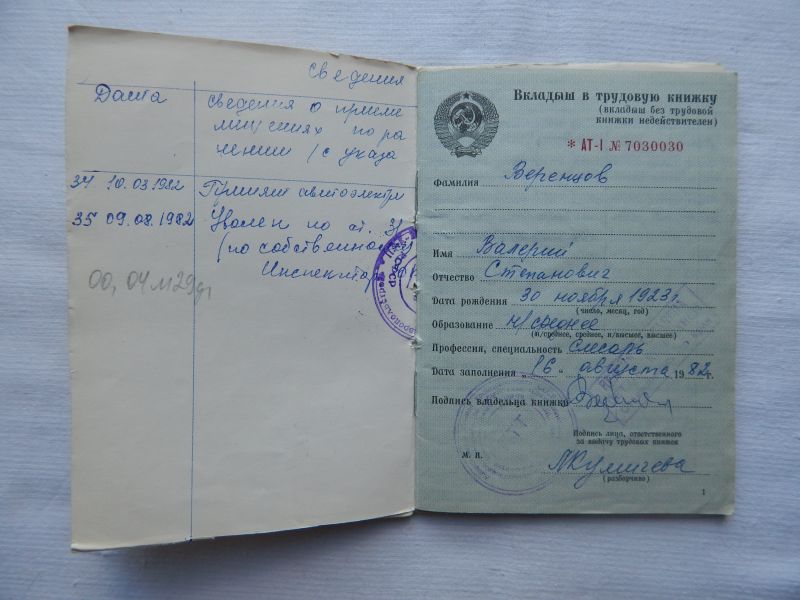 Сведения
Дата
сведения о приеме
34 10.03.1982
Принят автоэлектр
35 09.08.1982
Уволен по ст. 31
(по собственном
Инспектор
00, 04м29д
Вкладыш в трудовую книжку
(вкладыш без трудовой
книжки недействителен)
* АТ-I № 7030030
Фамилия Веренцов
Имя Валерий
Отчество Степанович
Дата рождения 30 ноября 1923 г.
(число, месяц, год)
Образование н/среднее
(н/среднее, среднее, н/высшее, высшее)
Профессия, специальность слесарь
Дата заполнения „16" августа 1982 г.
Подпись владельца книжки
Подпись лица, ответственного
за выдачу трудовых книжек
М. П.
(разборчиво)
1